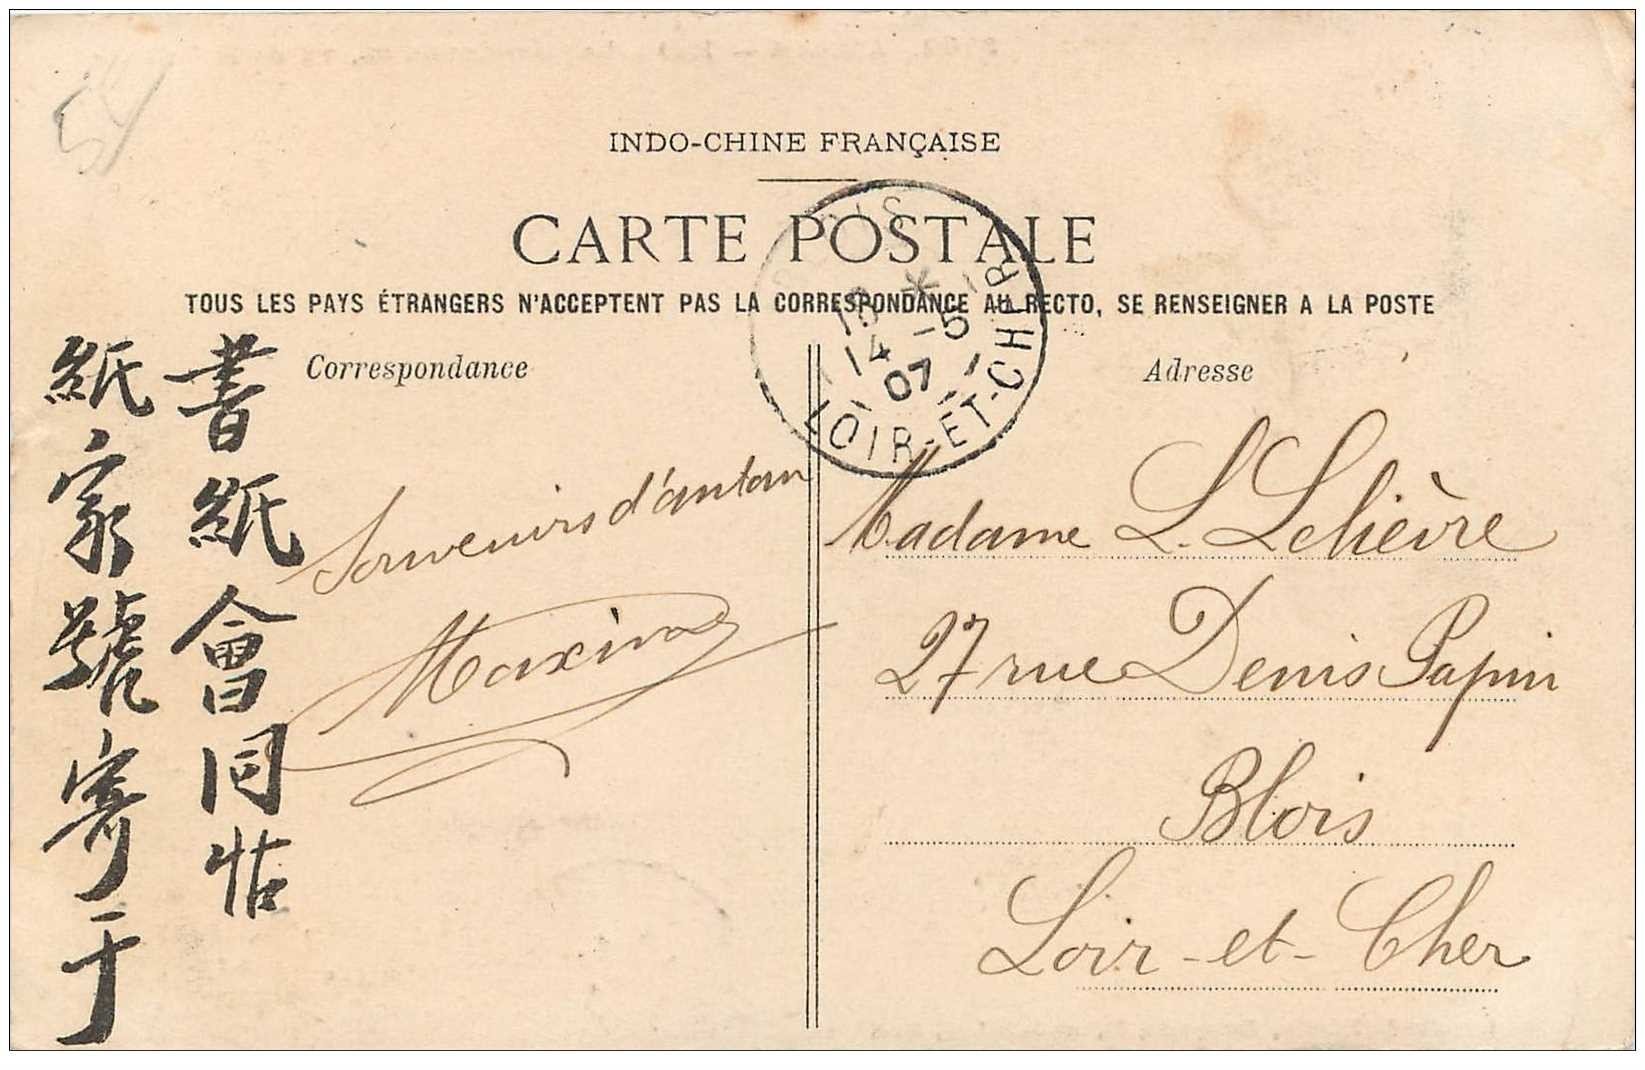 54
INDO-CHINE FRANÇAISE
CARTE POSTALE
TOUS LES PAYS ÉTRANGERS N'ACCEPTENT PAS LA CORRESPONDANCE AU RECTO, SE RENSEIGNER A LA POSTE
BLOIS
13 *
14 -5
07
LOIR-ET-CHER
Correspondance
Adresse
書紙會同怙
紙家號寄于
Souvenirs d'antan
Maxime
Madame L. Lelièvre
27 rue Denis Papin
Blois
Loir-et-Cher